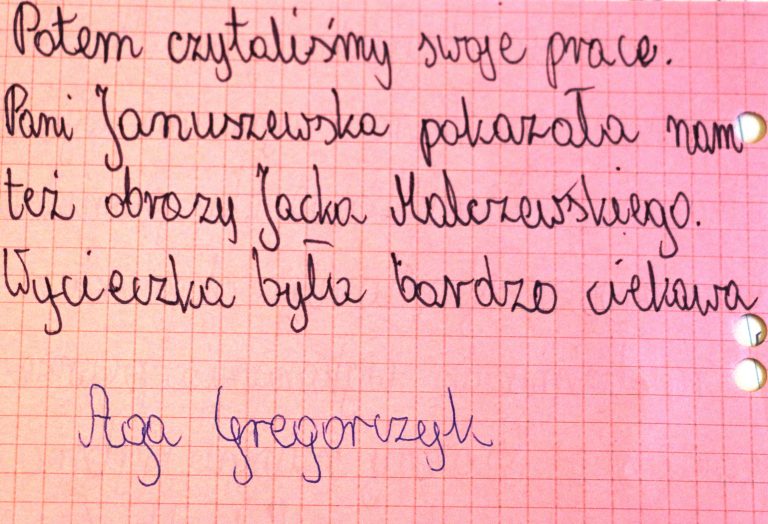 Potem czytaliśmy swoje prace.
Pani Januszewska pokazała nam
też obrazy Jacka Malczewskiego.
Wycieczka była bardzo ciekawa
Aga Gregorczyk